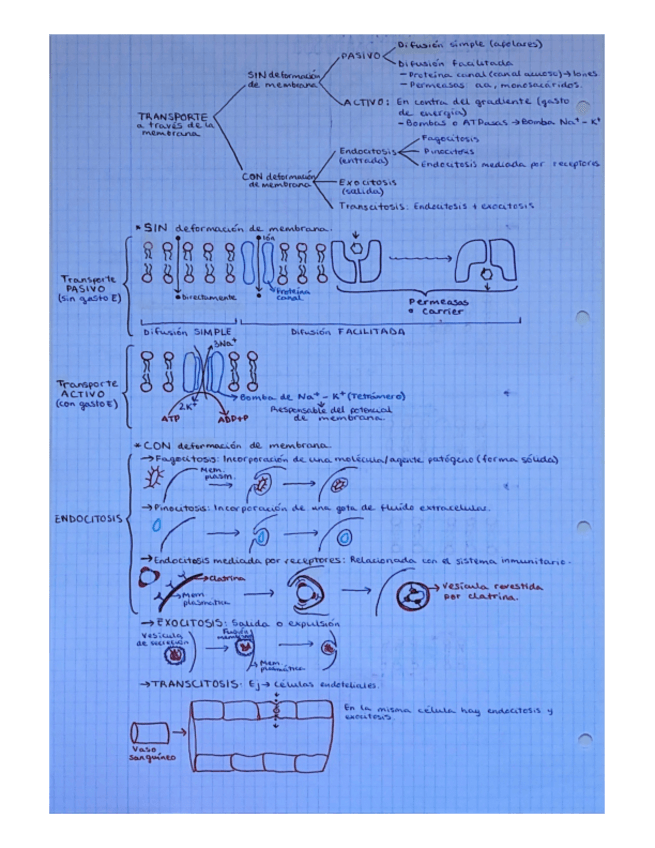 Difusión simple (apolares)
PASIVO
Difusión facilitada
SIN deformación
de membrana
- Proteína canal (canal acuoso) → Iones
- Permeasas aa, monosacáridos.
ACTIVO: En contra del gradiente (gasto
de energía)
- Bombas o ATPasas → Bomba Na+ - K+
TRANSPORTE
a través de la
membrana
Fagocitosis
Endocitosis
(entrada)
Pinocitosis
Endocitosis mediada por receptores
CON deformación
de membrana
Exocitosis
(salida)
Transcitosis: Endocitosis + exocitosis
* SIN deformación de membrana.
Ión
Transporte
PASIVO
(sin gasto E)
Directamente
Proteína
canal
Permeasas
o carrier
Difusión SIMPLE
Difusión FACILITADA
3Na+
Transporte
ACTIVO
(con gasto E)
2K+
Bomba de Na+ - K+ (Tetrámero)
ATP
ADP+P
Responsable del potencial
de membrana.
* CON deformación de membrana.
→ Fagocitosis: Incorporación de una molécula/agente patógeno (forma sólida)
Mem.
plasm.
→ Pinocitosis: Incorporación de una gota de fluido extracelular.
ENDOCITOSIS
→ Endocitosis mediada por receptores: Relacionada con el sistema inmunitario.
→ clatrina
→ Mem
plasmática
→ Vesícula revestida
por clatrina.
→ EXOCITOSIS: Salida o expulsión
Vesícula
de secreción
Fusión
membrana
Mem
plasmática
→ TRANSCITOSIS. Ej → Células endoteliales.
En la misma célula hay endocitosis y
exocitosis.
Vaso
sanguíneo